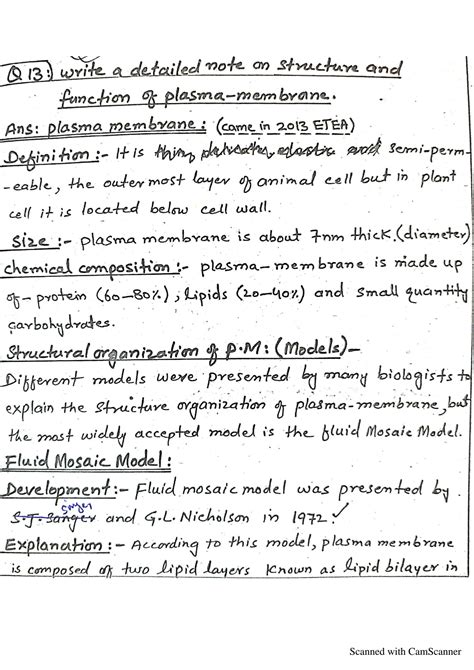 Q 13: write a detailed note on structure and
function of plasma-membrane.
Ans: plasma membrane: (came in 2013 ETEA)
Definition :- It is thiny delicate, elastic and semi-perm-
-eable, the outermost layer of animal cell but in plant
cell it is located below cell wall.
Size :- plasma membrane is about 7nm thick.(diameter)
chemical composition :- plasma-membrane is made up
of - protein (60-80%), lipids (20-40%) and small quantity
carbohydrates.
Structural organization of P.M: (Models)-
Different models were presented by many biologists to
explain the structure organization of plasma-membrane, but
the most widely accepted model is the fluid Mosaic Model.
Fluid Mosaic Model:
Development:- Fluid mosaic model was presented by
singer
S.J. Sanger and G.L. Nicholson in 1972.
Explanation :- According to this model, plasma membrane
is composed of two lipid layers known as lipid bilayer in
Scanned with CamScanner